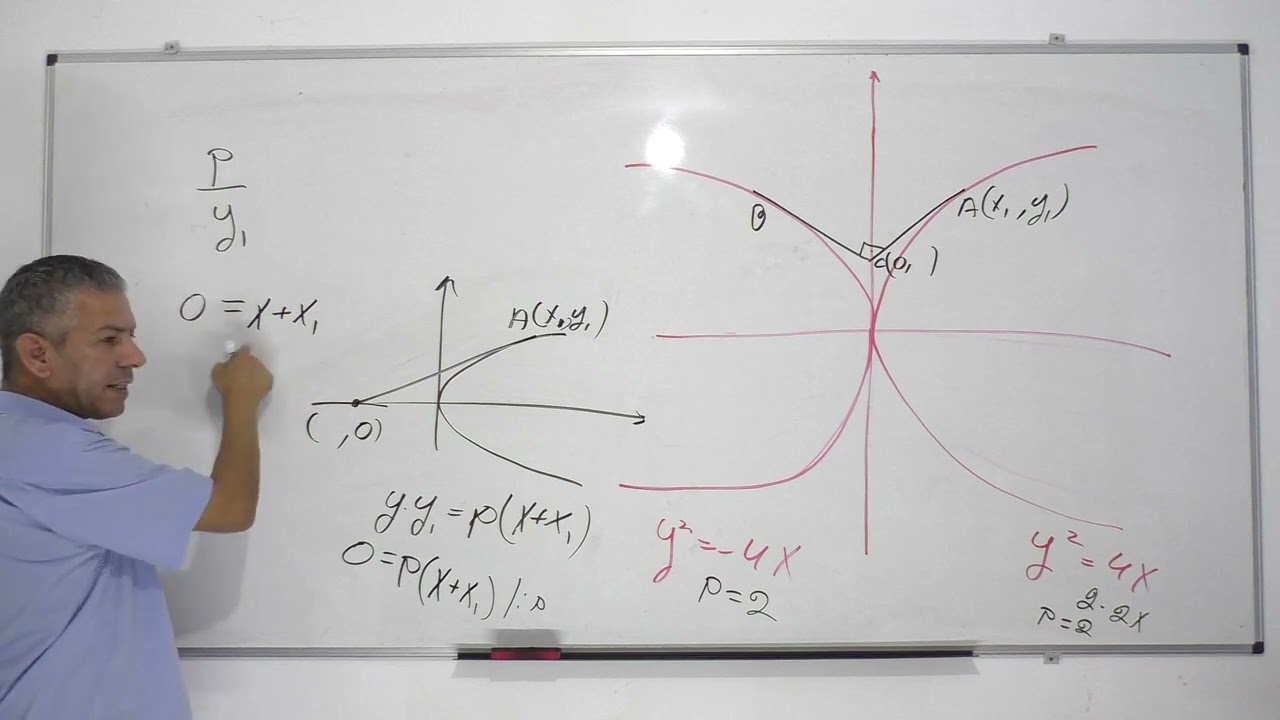 p
y₁
0 = x + x₁
A(x₁, y₁)
( , 0)
y·y₁ = p(x + x₁)
0 = p(x + x₁) /:p
B
A(x₁, y₁)
C(0, )
y² = -4x
p = 2
y² = 4x
2·2x
p = 2